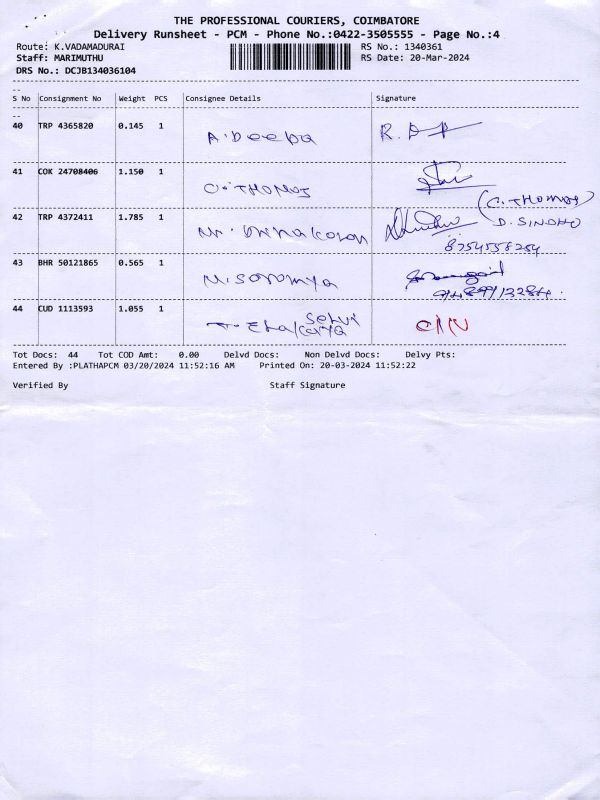 THE PROFESSIONAL COURIERS, COIMBATORE
Delivery Runsheet - PCM - Phone No.:0422-3505555 - Page No.:4
Route: K.VADAMADURAI RS No.: 1340361
Staff: MARIMUTHU RS Date: 20-Mar-2024
DRS No.: DCJB134036104
S No Consignment No Weight PCS Consignee Details Signature
40 TRP 4365820 0.145 1 A.Deepa
41 COK 24708406 1.150 1 C.THOMAS
(C. THOMAS)
42 TRP 4372411 1.785 1 D. SINDHU
8754558254
43 BHR 50121865 0.565 1 M.Sowmya
44 CUD 1113593 1.055 1 Selvi
Tot Docs: 44 Tot COD Amt: 0.00 Delvd Docs: Non Delvd Docs: Delvy Pts:
Entered By :PLATHAPCM 03/20/2024 11:52:16 AM Printed On: 20-03-2024 11:52:22
Verified By Staff Signature